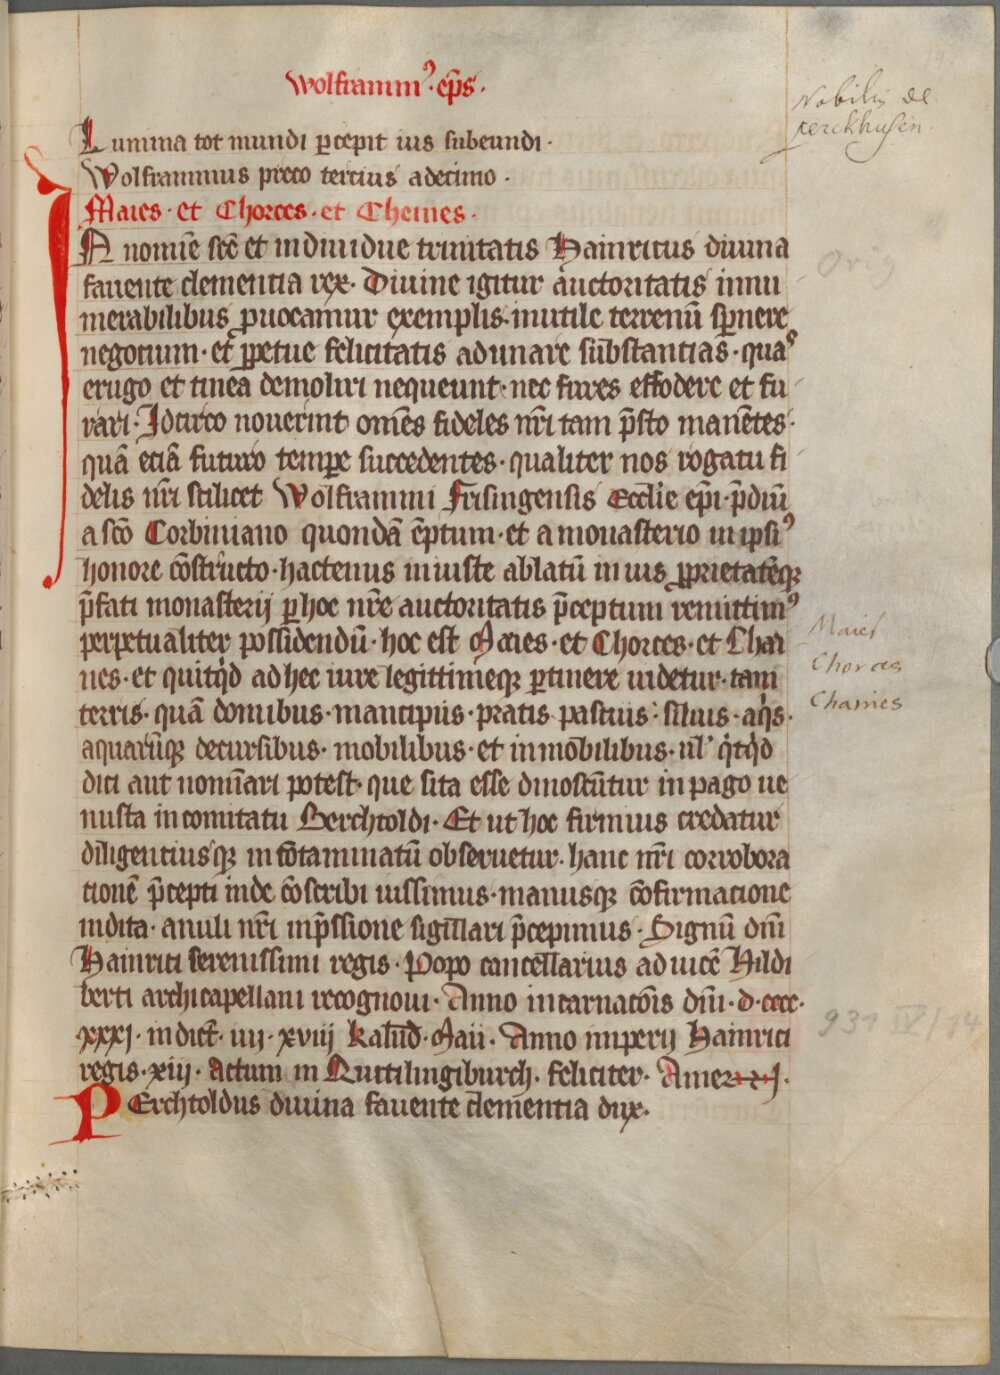 Wolframmꝰ · ep̄s ·
Nobilis de
Lumina tot mundi p̄cepit ius subeundi ·
Wolframmus preco tercius a decimo ·
Maies · et Chorces · et Cheines ·
IN nomīe sc̄e et indiuidue trinitatis Hainricus diuina
fauente clementia rex · Diuine igitur auctoritatis innu
Orig
merabilibus ꝓuocamur exemplis · inutile terrenū sꝑnere
negotium · et ꝑpetue felicitatis adunare substantias · quaˢ
erugo et tinea demoliri nequeunt · nec fures effodere et fu
rari · Idcirco nouerint om̄es fideles nr̄i tam p̄sto manētes ·
quā eciā futuro tempe succedentes · qualiter nos rogatu fi
delis nr̄i scilicet Wolframmi Frisingensis Eccl̄ie ep̄i · p̄diū
a sc̄o Corbiniano quondā ēptum · et a monasterio in ipsiꝰ
honore cōstructo · hactenus iniuste ablatū in ius ꝓprietatēqꝫ
p̄fati monasterij ꝑ hoc nr̄e auctoritatis p̄ceptum remittimꝰ
perpetualiter possidendū · hoc est Maies · et Chorces · et Chai
Maies
Chorces
nes · et quitqͥd ad hec iure legittimeqꝫ ꝑtinere uidetur · tam
Chaines
terris · quā domibus · mancipiis · pratis pascuis · siluis · aqͥs ·
aquarūqꝫ decursibus · mobilibus · et inmōbilibus · ul' qͥtqͥd
dici aut nominari potest · que sita esse dinoscūtur in pago ue
nusta in comitatu Berchtoldi · Et ut hoc firmius credatur
diligentiusqꝫ in cōtaminatū obseruetur · hanc nr̄i corrobora
tionē p̄cepti inde cōscribi iussimus · manusqꝫ cōfirmacione
indita · anuli nr̄i inp̄ssione sigillari p̄cepimus · Signū dn̄i
Hainrici serenissimi regis · Popo cancellarius ad uicē Hildi
berti archicapellani recognoui · Anno incarnacōis dn̄i · d · cccc ·
xxxj · indict̄ · iiij · xviij kaln̄d · Maii · Anno imperij Hainrici
931 IV/14
regis · xiij · Actum in Quitilingiburch · feliciter · Amen ·
PErchtoldus diuina fauente clementia dux ·